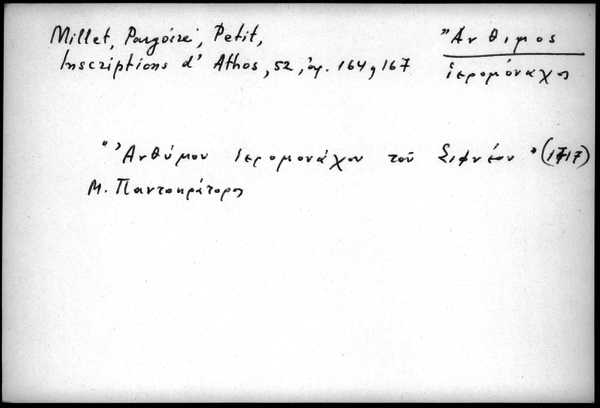 Millet, Pargoire, Petit,
Inscriptions d' Athos, 52, ἀρ. 164, 167
Ἄνθιμος
ἱερομόναχος
"Ἀνθύμου ἱερομονάχου τοῦ Σιφνέου" (1717)
Μ. Παντοκράτορος